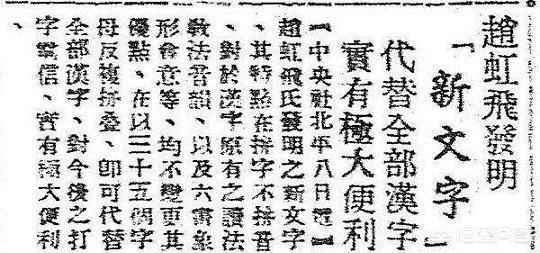 趙虹飛發明
「新文字」
代替全部漢字
實有極大便利
【中央社北平八日電】
趙虹飛氏發明之新文字
、其特點在拼字不拼音
、對於漢字原有之讀法
敎法音韻、以及六書象
形會意等、均不變更其
優點、在以三十五個字
母反複拼叠、卽可代替
全部漢字、對今後之打
字電信、實有極大便利
、
悟空问答